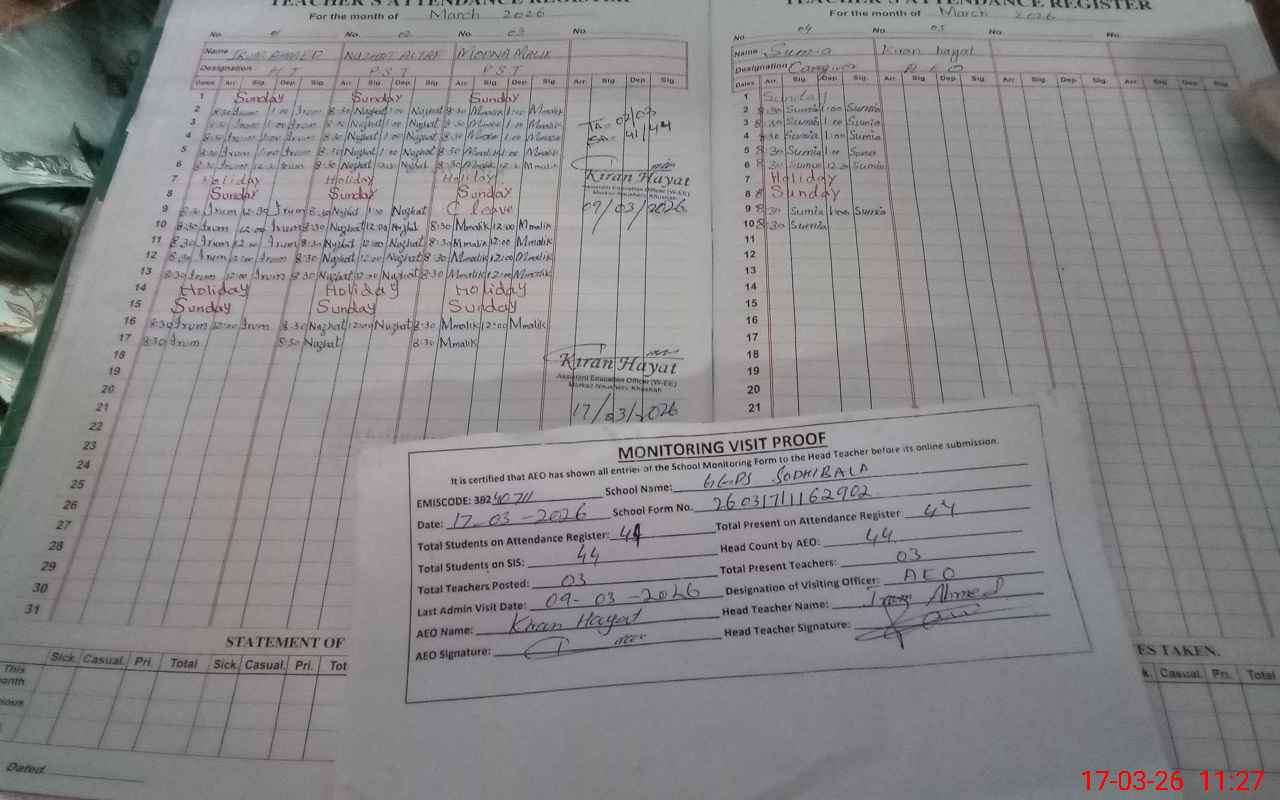 TEACHER'S ATTENDANCE REGISTER
For the month of March 2026
No. 01 No. 02 No. 03 No.
Name IRUM AHMED NUZHAT ALTAF MMALIK
Designation H T P.S.T P S T
Dates Arr Sig. Dep Sig. Arr Sig. Dep Sig. Arr Sig. Dep Sig. Arr Sig. Dep Sig.
1 Sunday Sunday Sunday
2 8:30 Irum 1:00 Irum 8:30 Nuzhat 1:00 Nuzhat 8:30 Mmalik 1:00 Mmalik
3 Irum 1:00 Irum 8:30 Nuzhat 1:00 Nuzhat 8:30 Mmalik 1:00 Mmalik
4 8:30 Irum 1:00 Irum 8:30 Nuzhat 1:00 Nuzhat 8:30 Mmalik 1:00 Mmalik
5 8:30 Irum 1:00 Irum 8:30 Nuzhat 1:00 Nuzhat 8:30 Mmalik 1:00 Mmalik
6 8:30 Irum Irum 8:30 Nuzhat Nuzhat 8:30 Mmalik Mmalik
7 Holiday Holiday Holiday
8 Sunday Sunday Sunday
9 8:30 Irum 12:30 Irum 8:30 Nuzhat 1:00 Nuzhat C leave
10 8:30 Irum 12:00 Irum 8:30 Nuzhat 12:00 Nuzhat 8:30 Mmalik 12:00 Mmalik
11 8:30 Irum 12:00 Irum 8:30 Nuzhat 12:00 Nuzhat 8:30 Mmalik 12:00 Mmalik
12 8:30 Irum 12:00 Irum 8:30 Nuzhat 12:00 Nuzhat 8:30 Mmalik 12:00 Mmalik
13 8:30 Irum 12:00 Irum 8:30 Nuzhat 12:00 Nuzhat 8:30 Mmalik 12:00 Mmalik
14 Holiday Holiday Holiday
15 Sunday Sunday Sunday
16 8:30 Irum 12:00 Irum 8:30 Nuzhat 12:00 Nuzhat 8:30 Mmalik 12:00 Mmalik
17 8:30 Irum 8:30 Nuzhat 8:30 Mmalik
18
19
20
21
22
23
24
25
26
27
28
29
30
31
02/03
41/44
Kiran Hayat
Assistant Education Officer (W-EE)
09/03/2026
Kiran Hayat
Assistant Education Officer (W-EE)
17/03/2026
STATEMENT OF
Sick. Casual. Pri. Total Sick. Casual. Pri. Tot
This
Dated
TEACHER'S ATTENDANCE REGISTER
For the month of March 2026
No. 04 No. 05 No. No.
Name Sumia Kiran hayat
Designation Caregiver A E O
Dates Arr Sig. Dep Sig. Arr Sig. Dep Sig. Arr Sig. Dep Sig. Arr Sig. Dep Sig.
1 Sunday
2 8:30 Sumia 1:00 Sumia
3 8:30 Sumia 1:00 Sumia
4 8:30 Sumia 1:00 Sumia
5 8:30 Sumia 1:00 Sumia
6 8:30 Sumia Sumia
7 Holiday
8 Sunday
9 8:30 Sumia 1:00 Sumia
10 8:30 Sumia
11
12
13
14
15
16
17
18
19
20
21
ES TAKEN.
Casual. Pri. Total
MONITORING VISIT PROOF
It is certified that AEO has shown all entries of the School Monitoring Form to the Head Teacher before its online submission.
EMISCODE: 38240711 School Name: GGPS SODHI BALA
Date: 17-03-2026 School Form No. 260317/1162902
Total Students on Attendance Register: 44 Total Present on Attendance Register 44
Total Students on SIS: 44 Head Count by AEO: 44
Total Teachers Posted: 03 Total Present Teachers: 03
Last Admin Visit Date: 09-03-2026 Designation of Visiting Officer: AEO
AEO Name: Kiran Hayat Head Teacher Name: Irum Ahmed
AEO Signature: Head Teacher Signature:
17-03-26 11:27